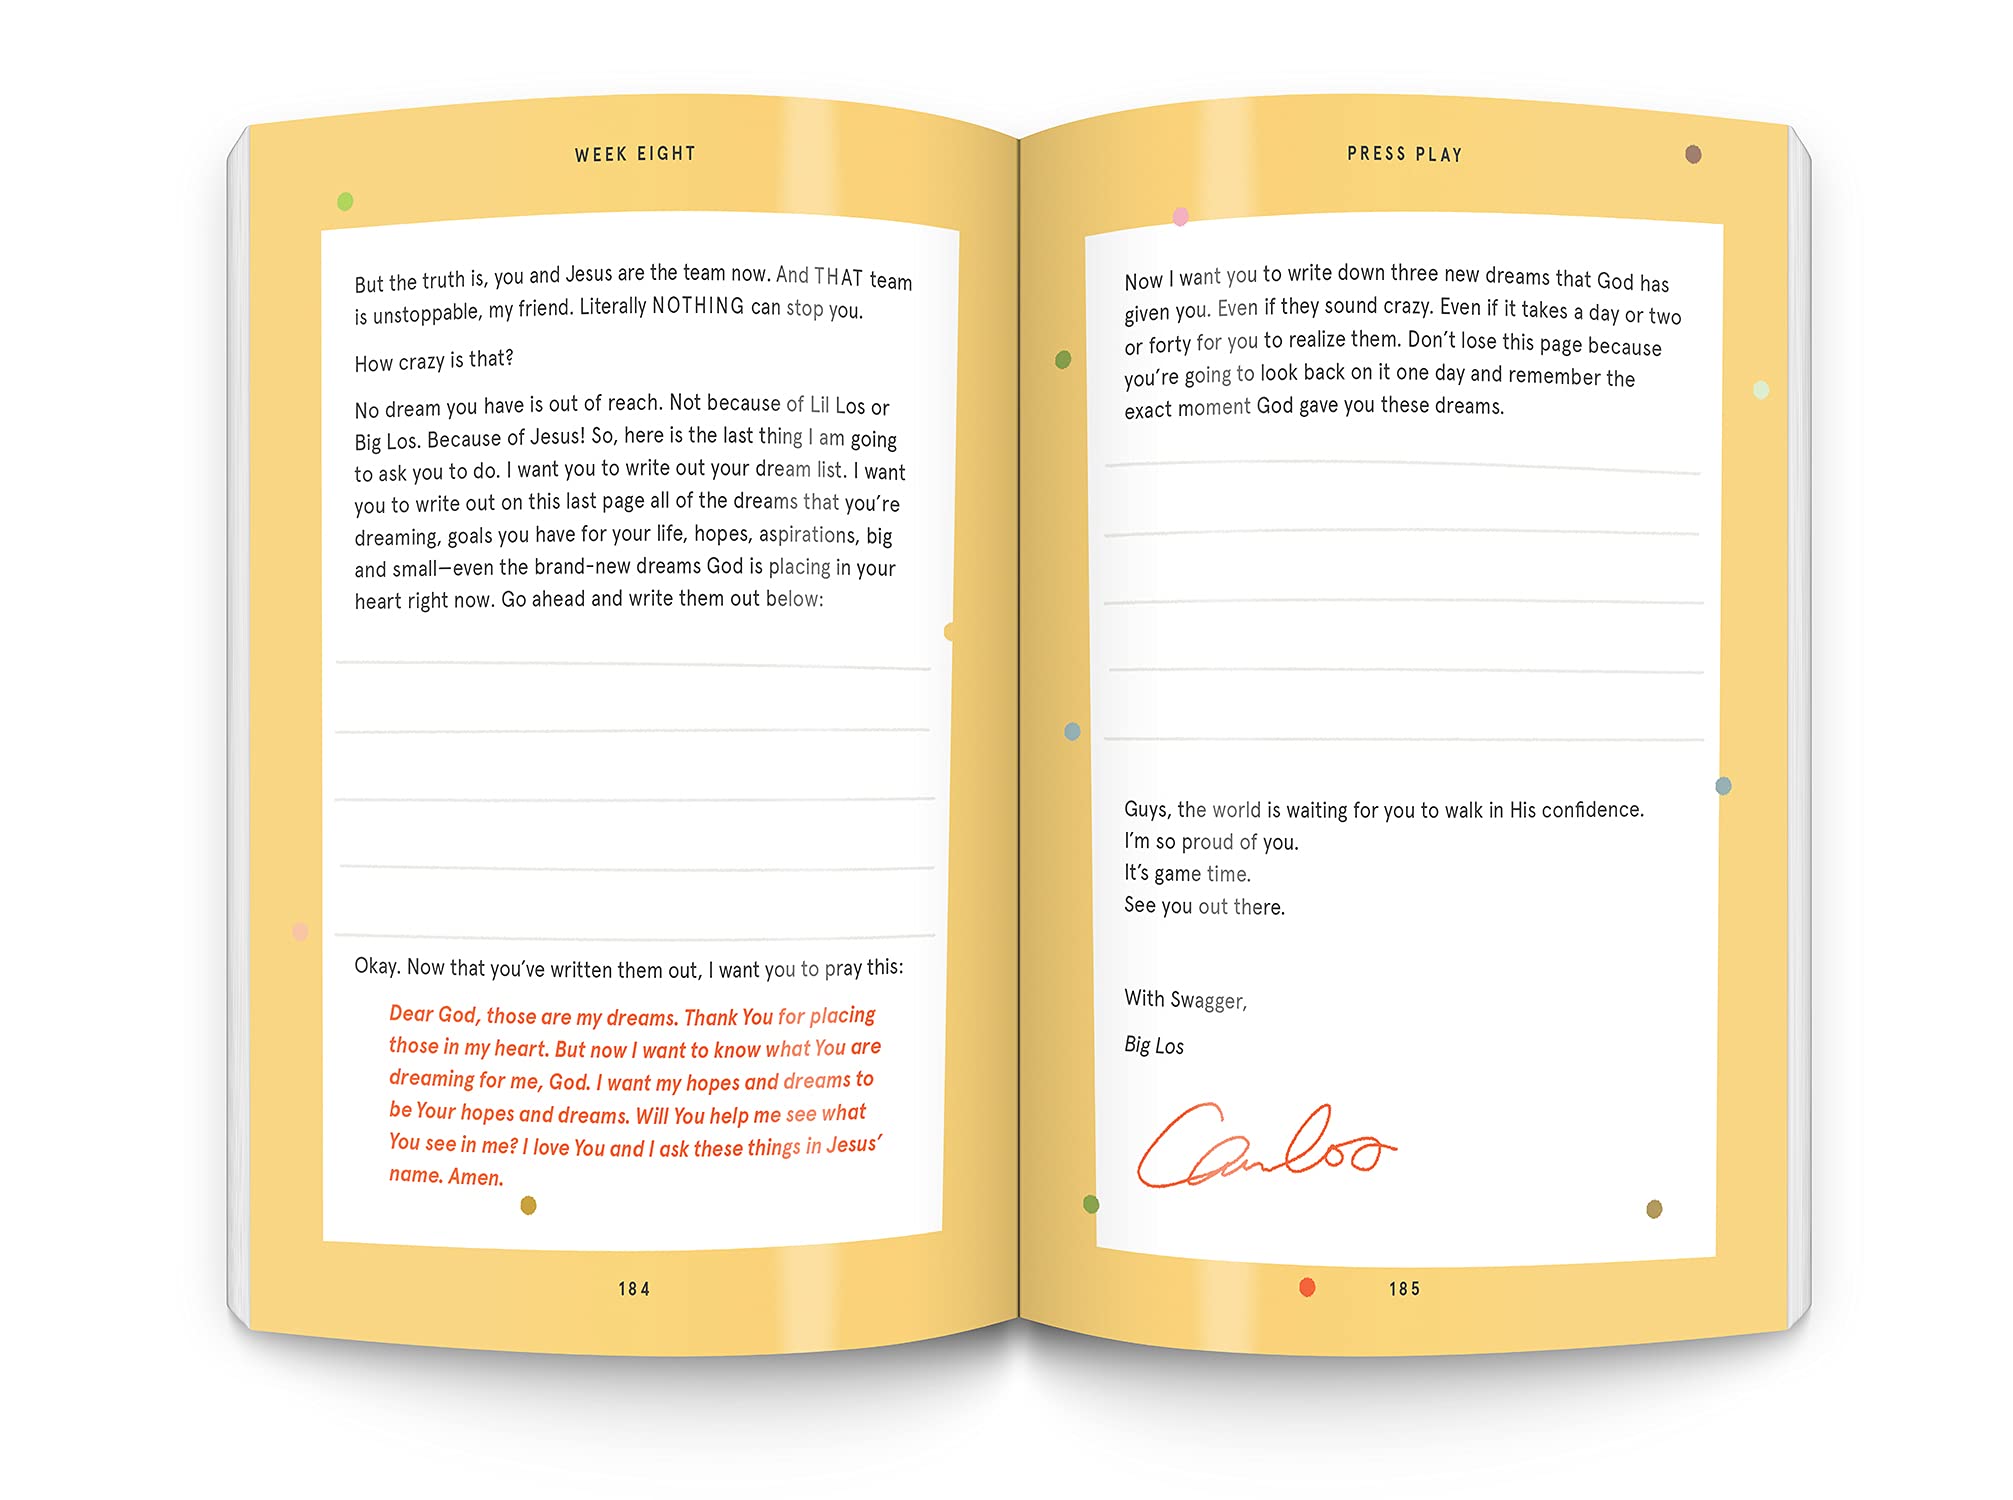 WEEK EIGHT
But the truth is, you and Jesus are the team now. And THAT team
is unstoppable, my friend. Literally NOTHING can stop you.
How crazy is that?
No dream you have is out of reach. Not because of Lil Los or
Big Los. Because of Jesus! So, here is the last thing I am going
to ask you to do. I want you to write out your dream list. I want
you to write out on this last page all of the dreams that you're
dreaming, goals you have for your life, hopes, aspirations, big
and small—even the brand-new dreams God is placing in your
heart right now. Go ahead and write them out below:
Okay. Now that you've written them out, I want you to pray this:
Dear God, those are my dreams. Thank You for placing
those in my heart. But now I want to know what You are
dreaming for me, God. I want my hopes and dreams to
be Your hopes and dreams. Will You help me see what
You see in me? I love You and I ask these things in Jesus'
name. Amen.
184
PRESS PLAY
Now I want you to write down three new dreams that God has
given you. Even if they sound crazy. Even if it takes a day or two
or forty for you to realize them. Don't lose this page because
you're going to look back on it one day and remember the
exact moment God gave you these dreams.
Guys, the world is waiting for you to walk in His confidence.
I'm so proud of you.
It's game time.
See you out there.
With Swagger,
Big Los
Carlos
185